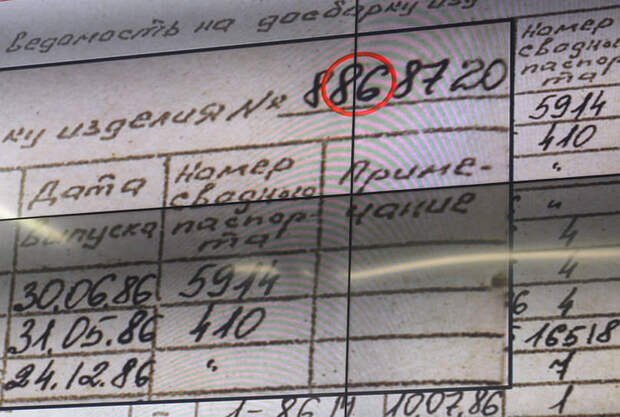 ведомость на досборку изд
ку изделия № 8868720
Дата выпуска
Номер сводного паспор-та
Приме-чание
30.06.86 5914
31.05.86 410
24.12.86 "
Номер
сводного
паспор
та
5914
410
"
"
4
4
6 4
16518
7
10.07.86 1